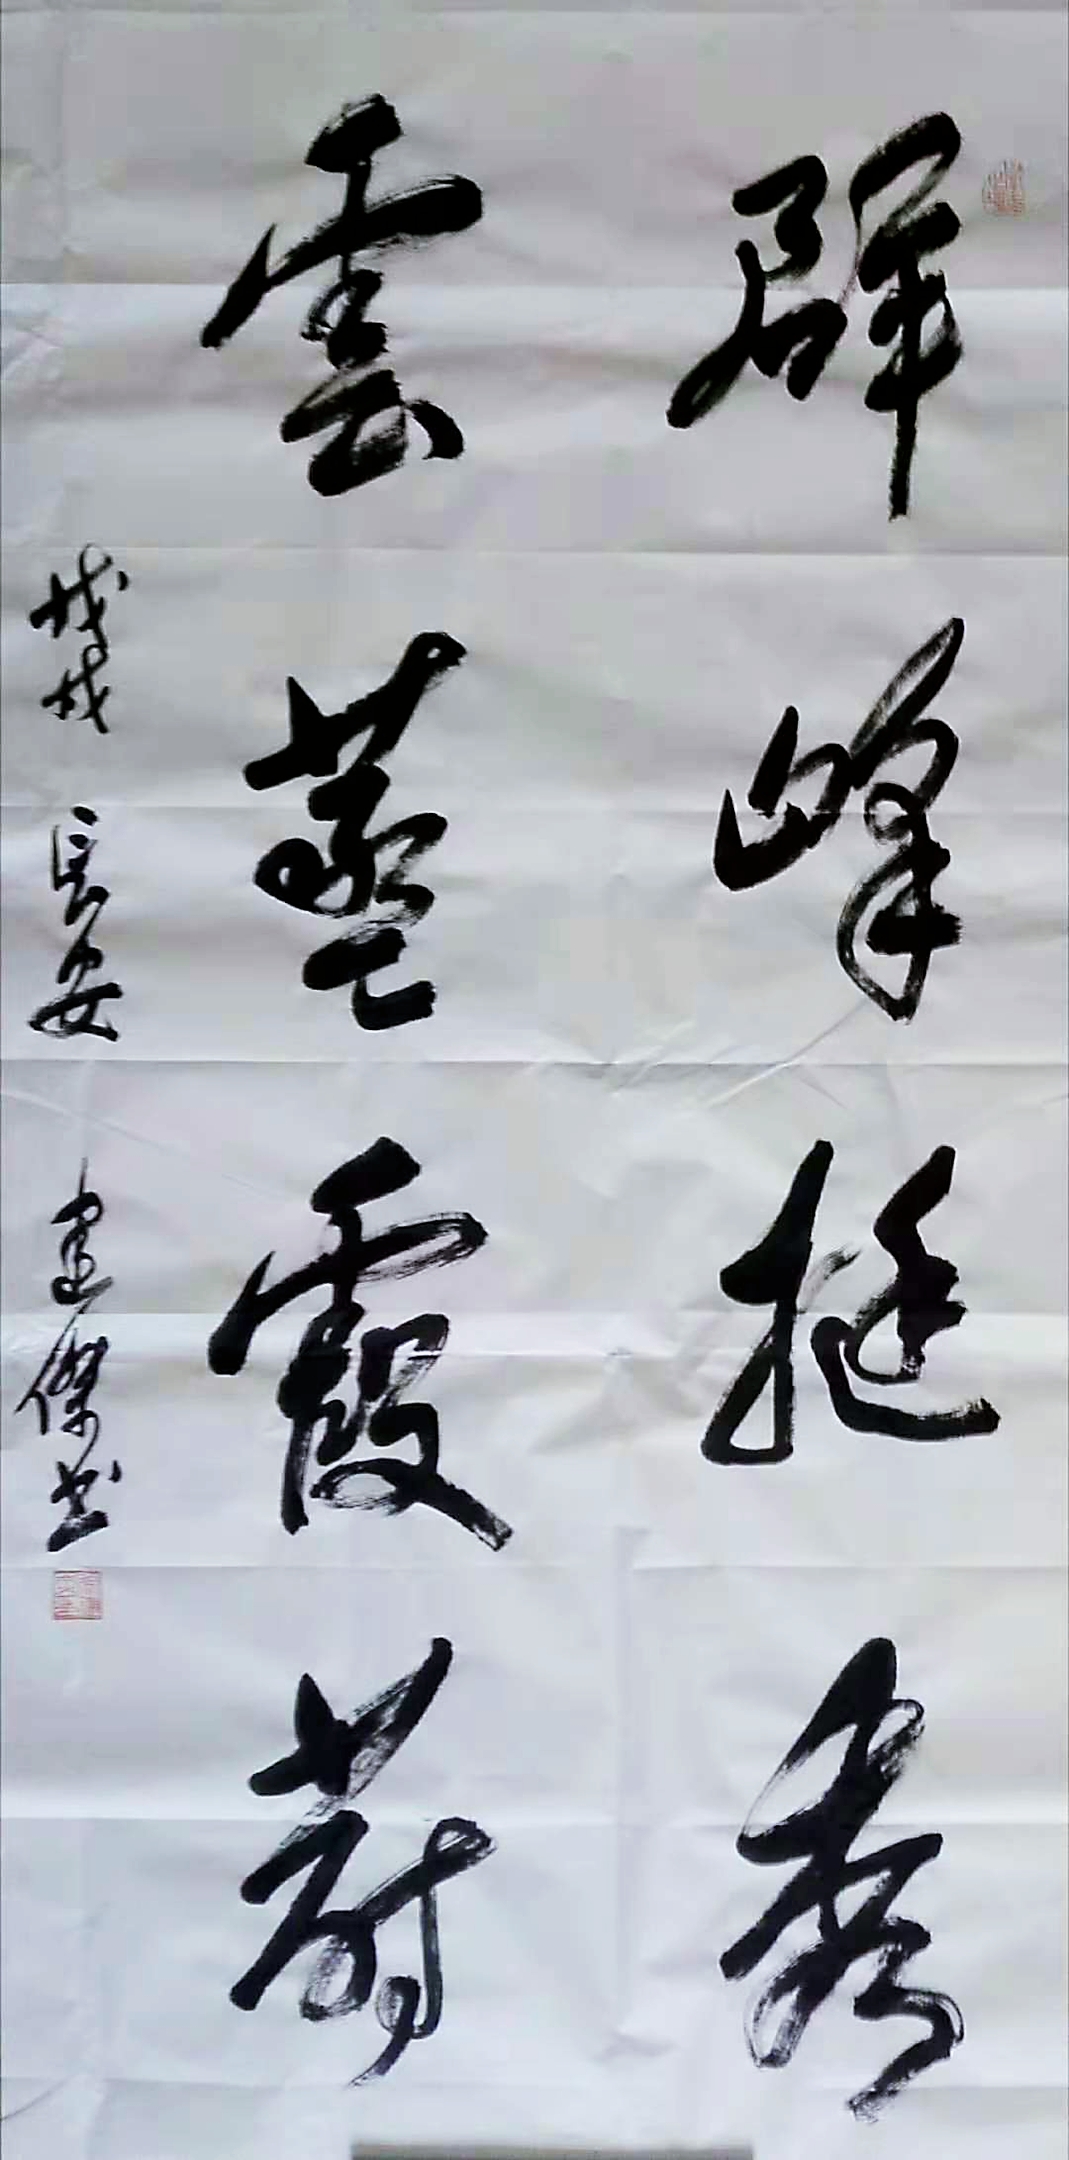 群峰挺秀
雲蒸霞蔚
戊戌 長安 建傑书